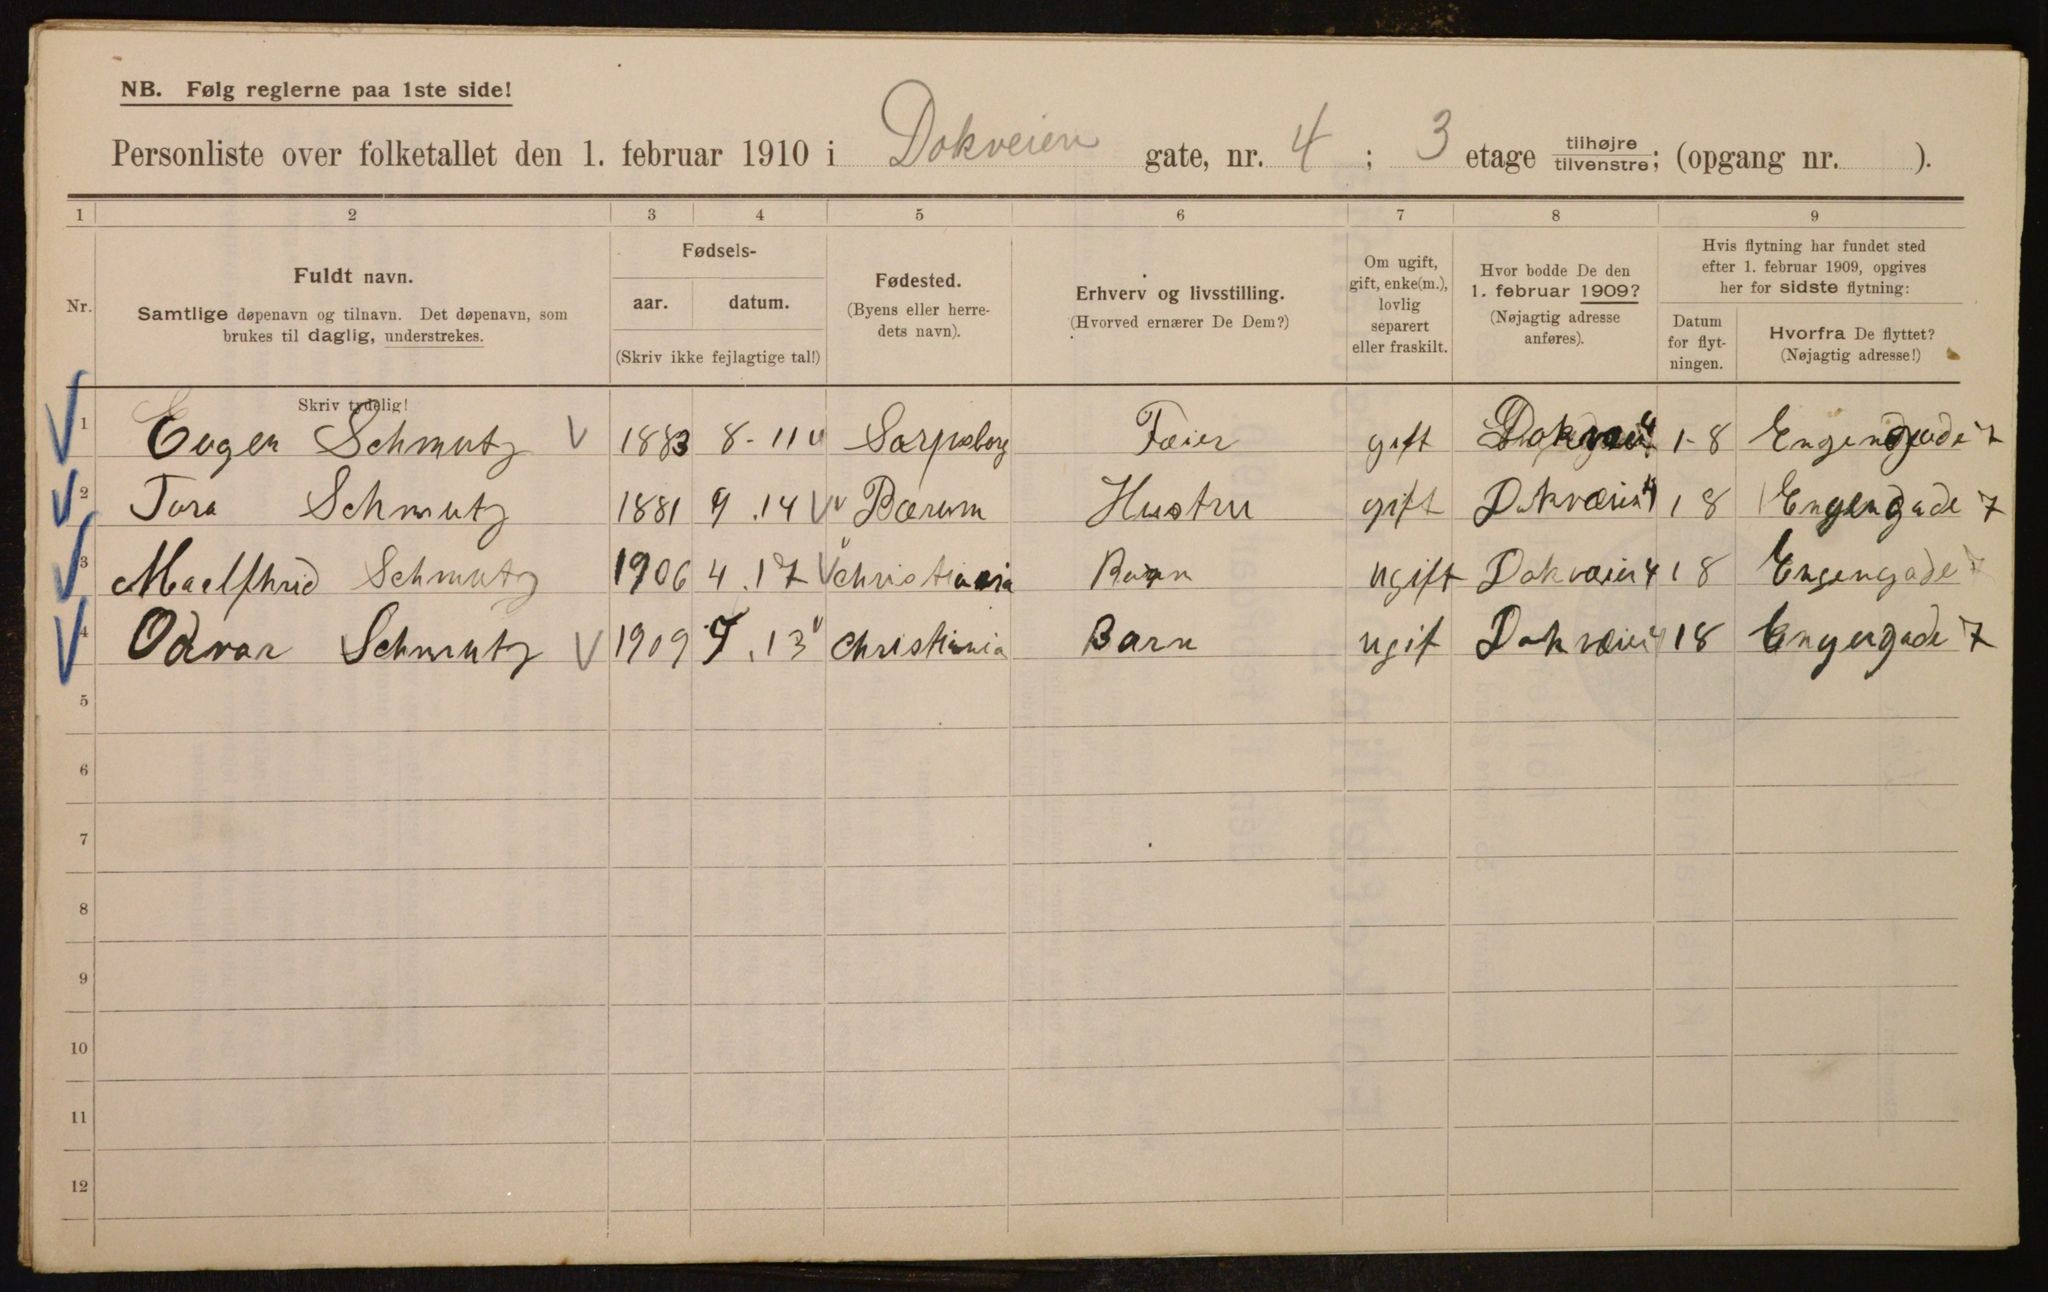 NB. Følg reglerne paa 1ste side!
Personliste over folketallet den 1. februar 1910 i Dokveien gate, nr. 4 ; 3 etage tilhøjre/tilvenstre; (opgang nr. ).
1 2 3 4 5 6 7 8 9
Nr.
Fuldt navn.
Samtlige døpenavn og tilnavn. Det døpenavn, som
brukes til daglig, understrekes.
Fødsels-
aar. datum.
(Skriv ikke fejlagtige tal!)
Fødested.
(Byens eller herre-
dets navn).
Erhverv og livsstilling.
(Hvorved ernærer De Dem?)
Om ugift,
gift, enke(m.),
lovlig
separert
eller fraskilt.
Hvor bodde De den
1. februar 1909?
(Nøjagtig adresse
anføres).
Hvis flytning har fundet sted
efter 1. februar 1909, opgives
her for sidste flytning:
Datum
for flyt-
ningen.
Hvorfra De flyttet?
(Nøjagtig adresse!)
Skriv tydelig!
1 Eugen Schmutz 1883 8-11 Sarpsborg Fæier gift 1-8 Engengade 7
2 Tora Schmutz 1881 9.14 Bærum Hustru gift Dokvæien 4 1 8 Engengade 7
3 Schmutz 1906 4.17 Christiania Barn ugift Dokvæien 4 1 8 Engengade 7
4 Odvar Schmutz 1909 7.13 Christiania Barn ugif Dokvæien 4 18 Engengade 7
5
6
7
8
9
10
11
12